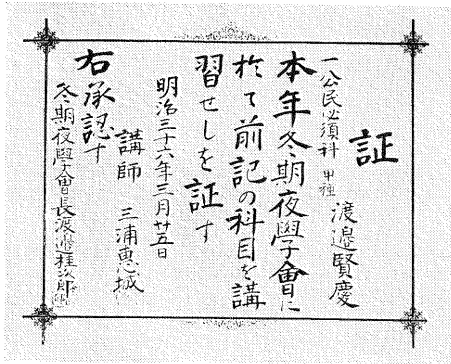 証
渡邉賢慶
一公民必須科 甲種
本年冬期夜學會に
於て前記の科目を講
習せしを証す
明治三十六年三月廿五日
講師 三浦惠城
右承認す
冬期夜學會長渡邉桂次郎